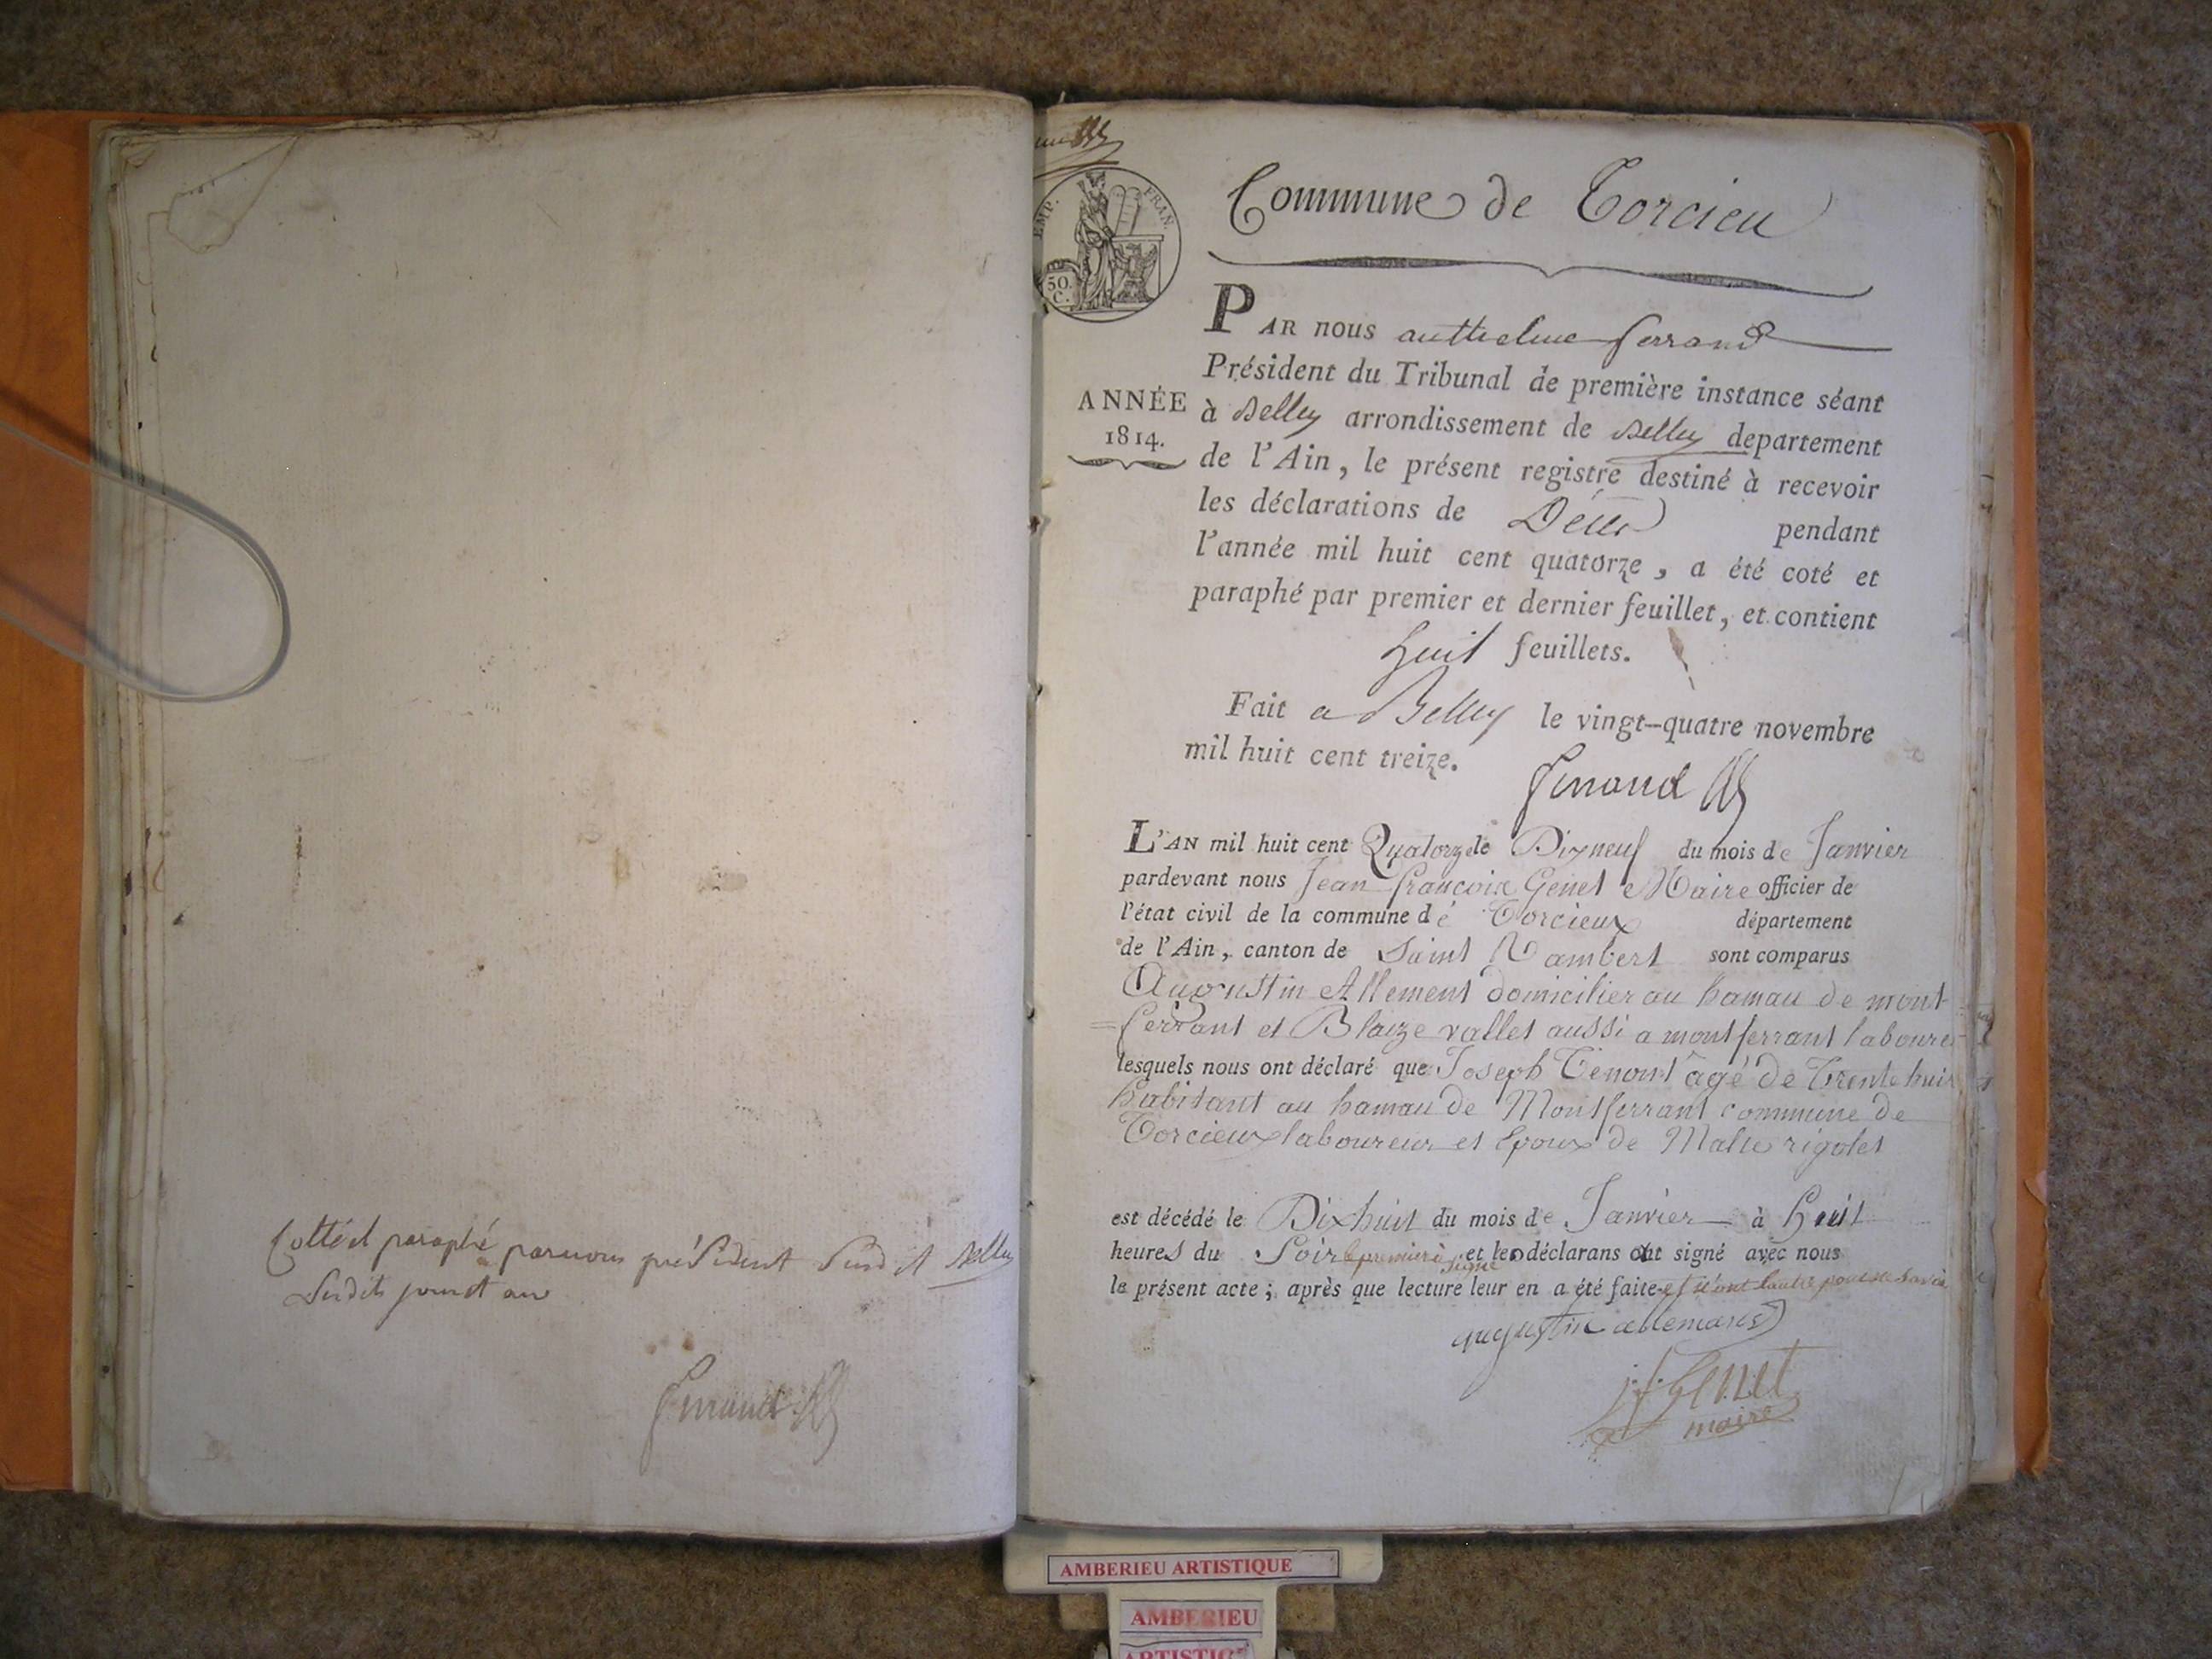 Cotté et paraphé par nous président susdit A Belley
Susdits jour et an
Ferrand
EMP. FRAN.
50.
C.
Commune de Torcieu
ANNÉE
1814.
PAR nous anthelme ferrand
Président du Tribunal de première instance séant
à Belley arrondissement de Belley departement
de l'Ain, le présent registre destiné à recevoir
les déclarations de Décès pendant
l'année mil huit cent quatorze, a été coté et
paraphé par premier et dernier feuillet, et contient
huit feuillets.
Fait a Belley le vingt-quatre novembre
mil huit cent treize.
Ferrand
L'AN mil huit cent Quatorze le Dixneuf du mois de Janvier
pardevant nous Jean françois Genet Maire officier de
l'état civil de la commune de Torcieux département
de l'Ain, canton de Saint Rambert sont comparus
Augustin Allement domicilier au hamau de mont
=ferrant et Blaize vallet aussi a montferrant laboure
lesquels nous ont déclaré que Joseph Tenont âgé de Trente huit
habitant au hamau de Montferrant commune de
Torcieux laboureur et Epoux de Rigolet
est décédé le Dixhuit du mois de Janvier à huit
heures du Soir le premier à signé et les déclarans ont signé avec nous
le présent acte; après que lecture leur en a été faite et l'autre pour ne savoir
augustin allemand
j.f. Genet
maire
AMBERIEU ARTISTIQUE
AMBERIEU